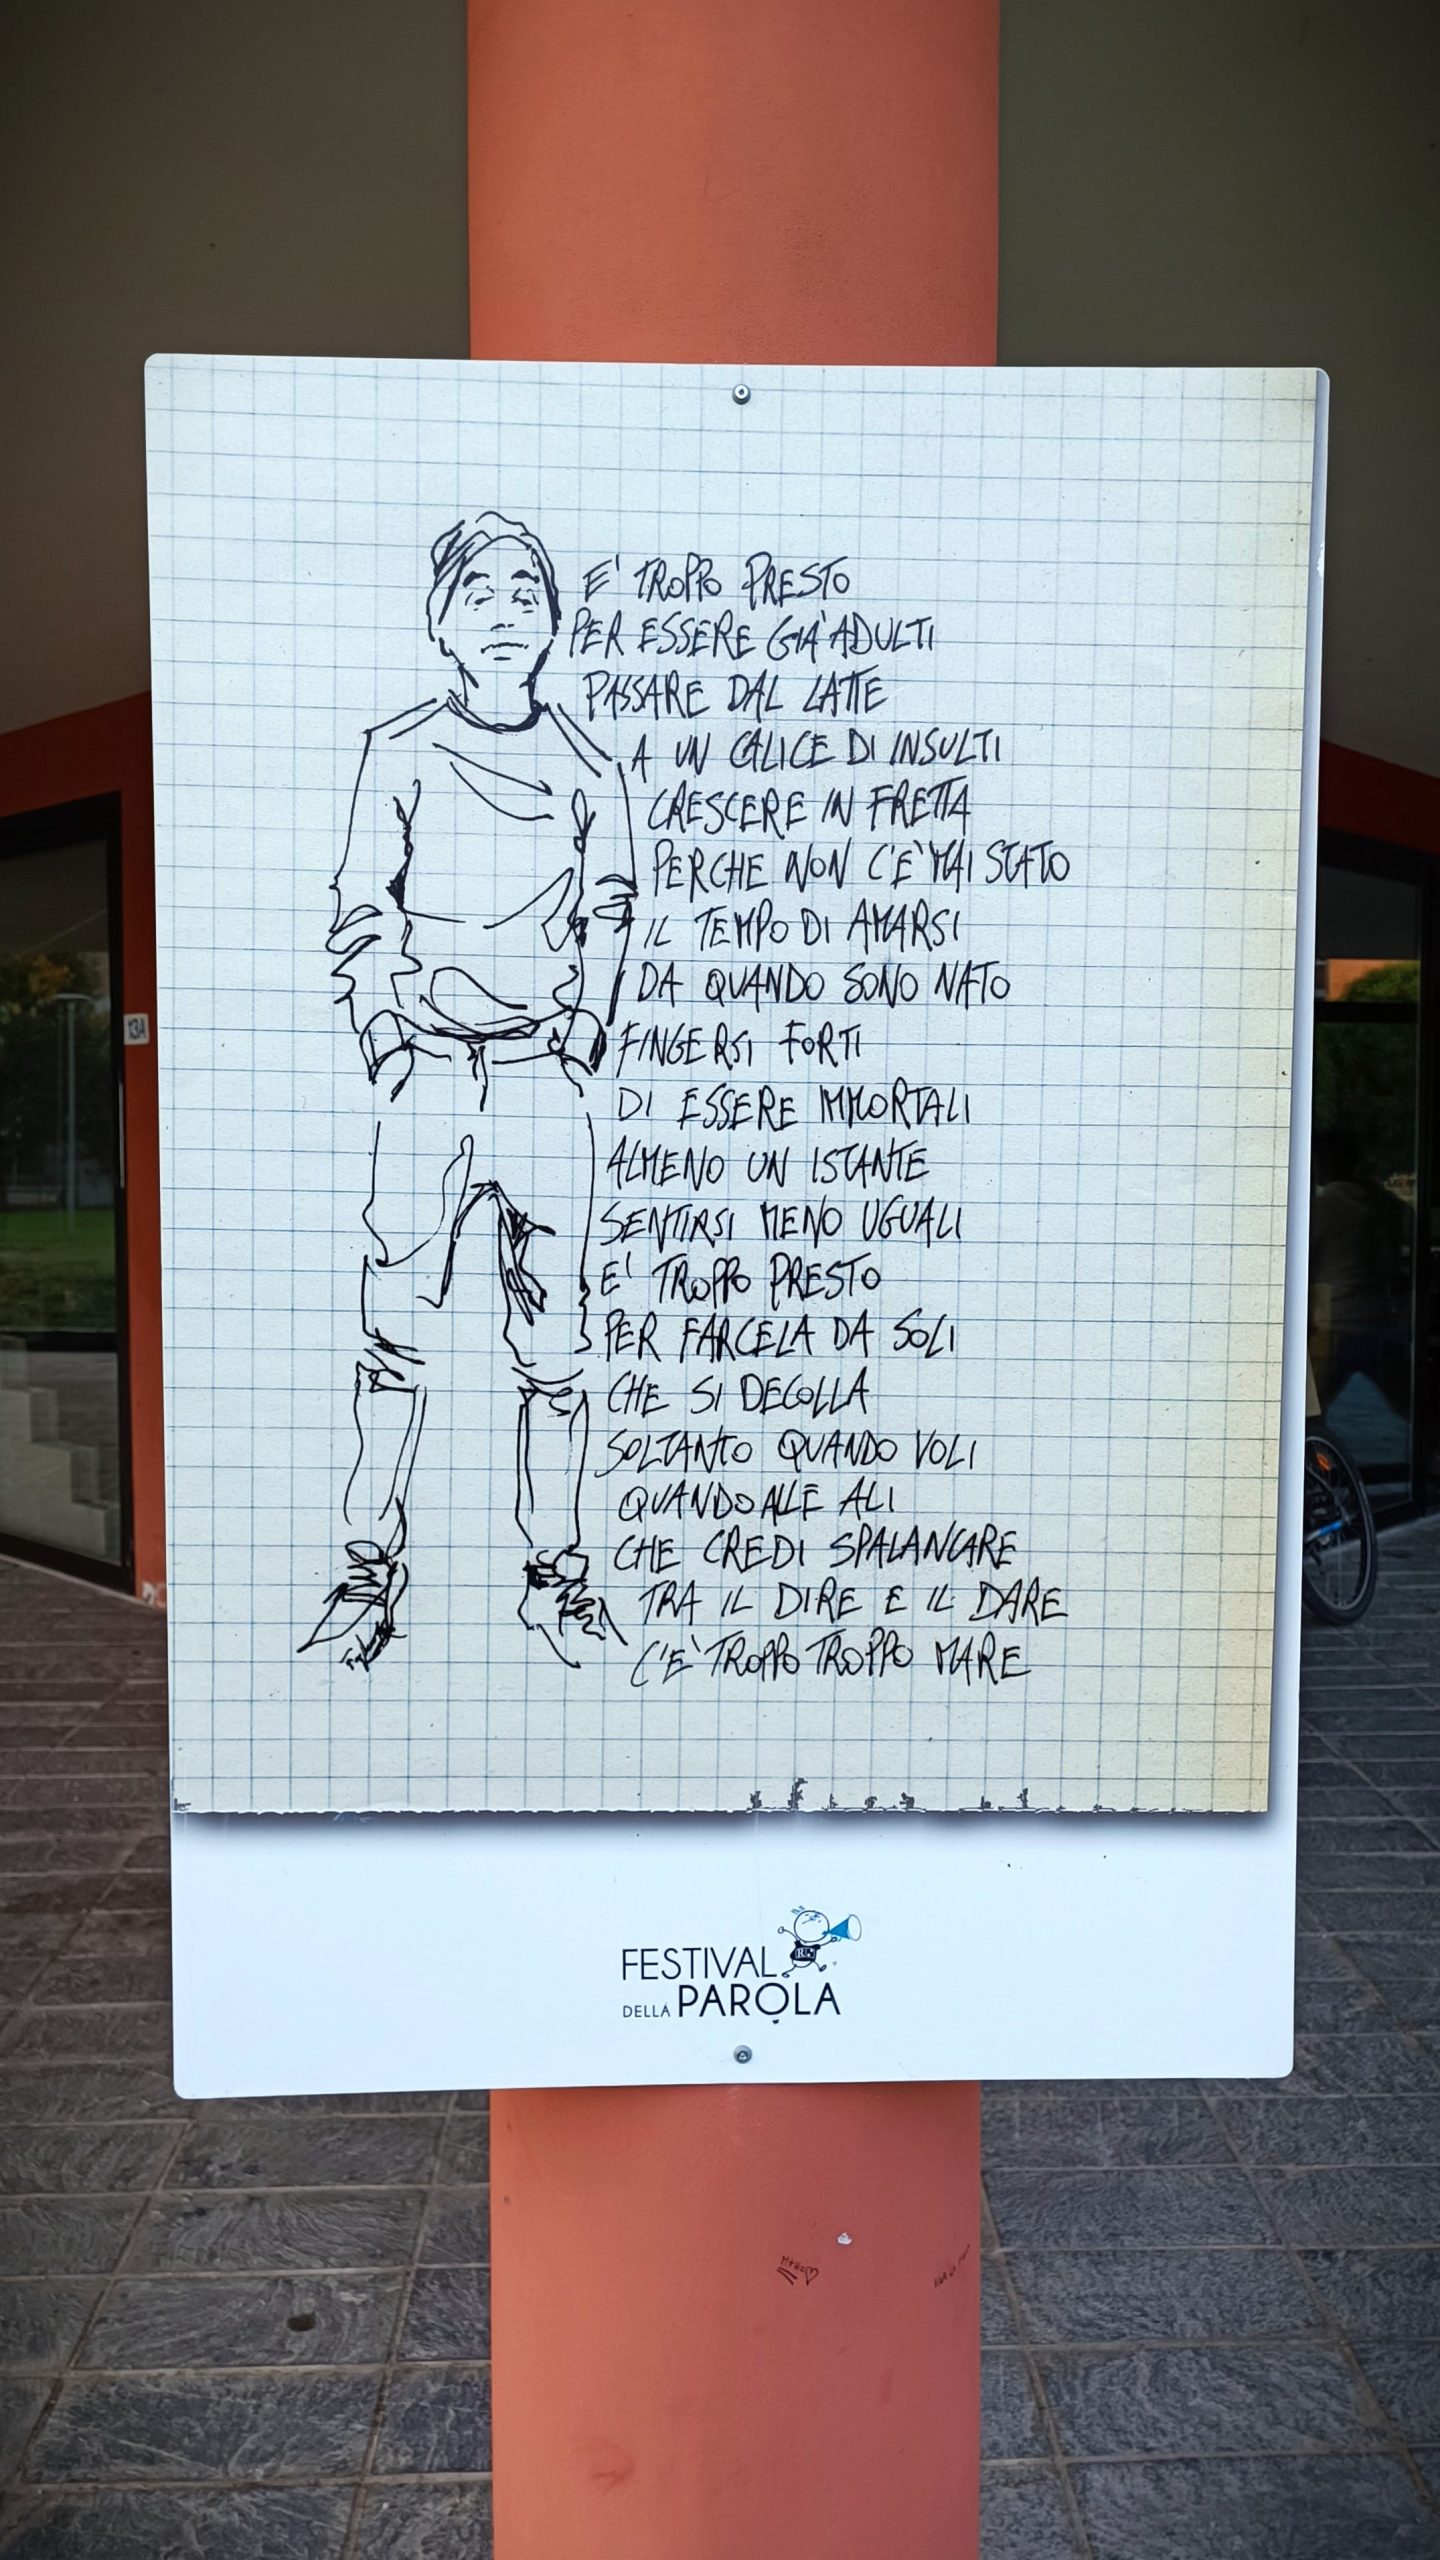 E' TROPPO PRESTO
PER ESSERE GIA' ADULTI
PASSARE DAL LATTE
A UN CALICE DI INSULTI
CRESCERE IN FRETTA
PERCHE NON C'E' MAI STATO
IL TEMPO DI AMARSI
DA QUANDO SONO NATO
FINGERSI FORTI
DI ESSERE IMMORTALI
ALMENO UN ISTANTE
SENTIRSI MENO UGUALI
E' TROPPO PRESTO
PER FARCELA DA SOLI
CHE SI DECOLLA
SOLTANTO QUANDO VOLI
QUANDO ALLE ALI
CHE CREDI SPALANCARE
TRA IL DIRE E IL DARE
C'E' TROPPO TROPPO MARE
FESTIVAL
DELLA PAROLA
13A